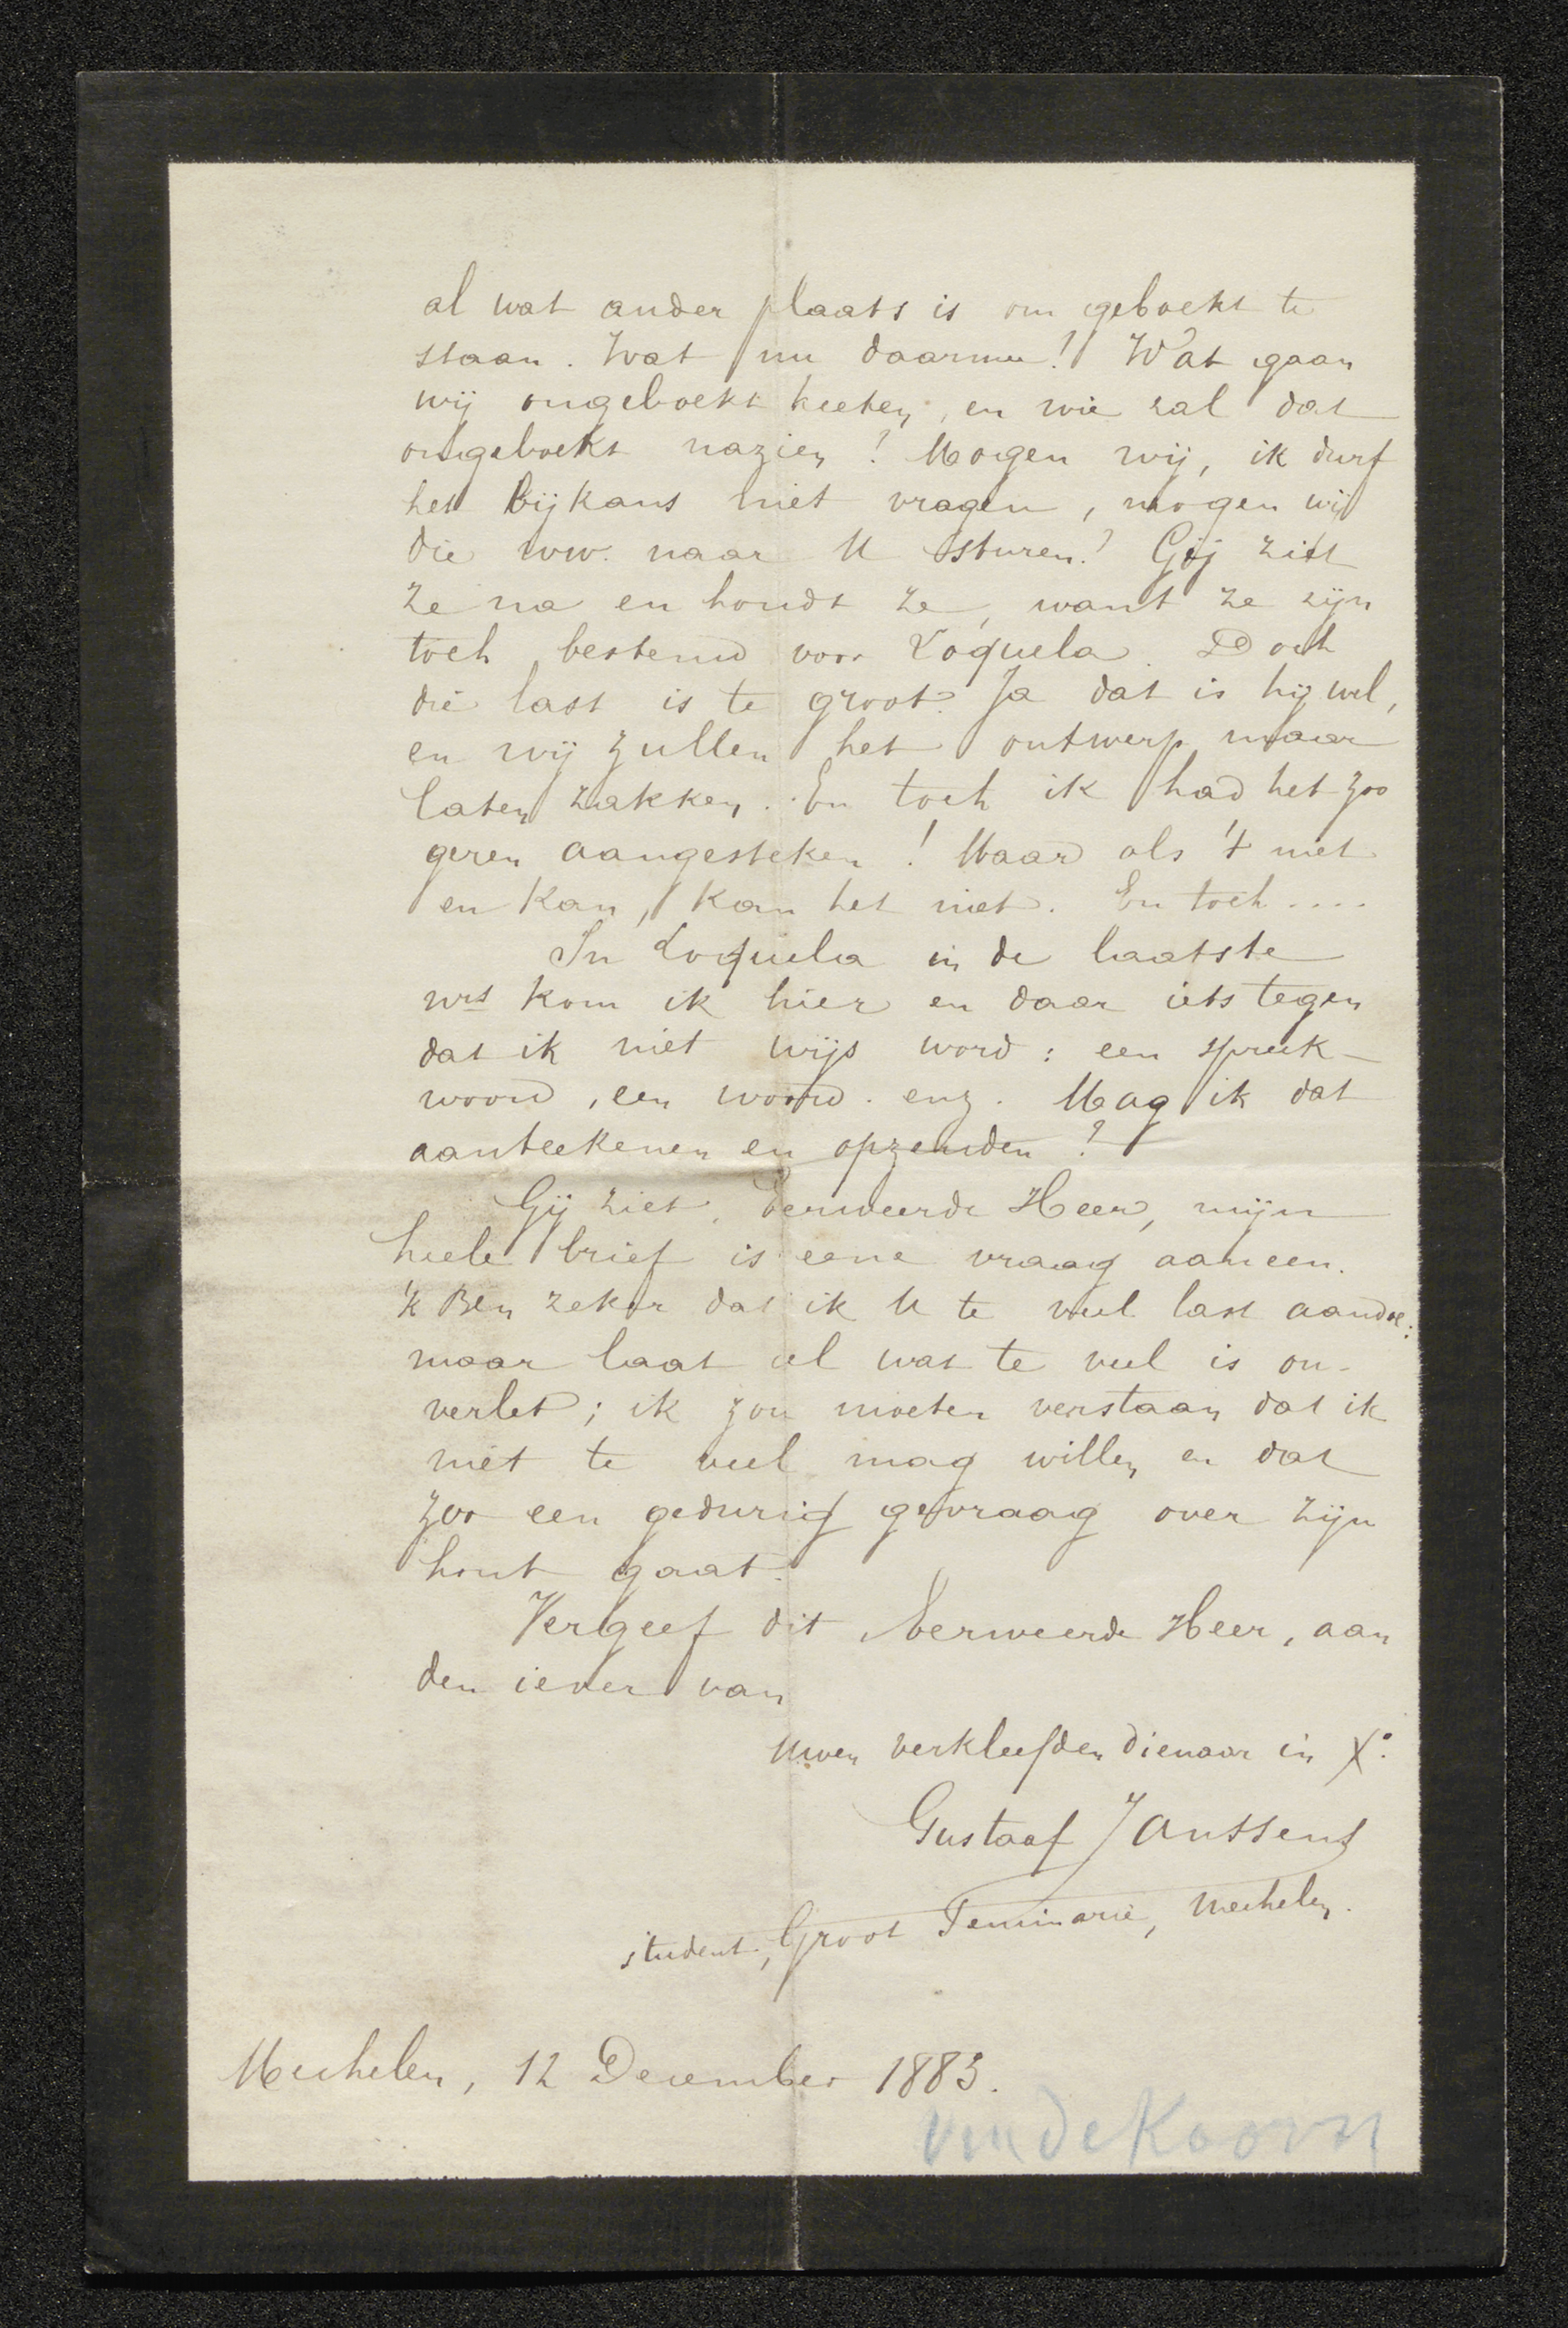 al wat ander plaats is om geboekt te
staan. Wat nu daarmeê? Wat gaan
wij ongeboekt heeten, en wie zal dat
ongeboekt nazien? Mogen wij, ik durf
het bijkans niet vragen, mogen wij
die ww. naar U sturen? Gij ziet
ze na en houdt ze, want ze zijn
toch bestemd voor Loquela. Doch
die last is te groot. Ja dat is hij wel,
en wij zullen het ontwerp maar
laten zakken. En toch ik had het zoo
geren aangesteken! Maar als 't niet
en kan, kan het niet. En toch ....
In Loquela in de laatste
nrs kom ik hier en daar iets tegen
dat ik niet wijs word: een spreek-
woord, een woord. enz. Mag ik dat
aanteekenen en opzenden?
Gij ziet, Eerweerde Heer, mijn
heele brief is eene vraag aaneen.
'k Ben zeker dat ik U te veel last aandoe:
maar laat al wat te veel is on-
verlet; ik zou moeten verstaan dat ik
niet te veel mag willen en dat
zoo een gedurig gevraag over zijn
hout gaat.
Vergeef dit Eerweerde Heer, aan
den iever van
Uwen verkleefden dienaar in X°.
Gustaaf Janssens
student, Groot Seminarie, Mechelen.
Mechelen, 12 December 1883.